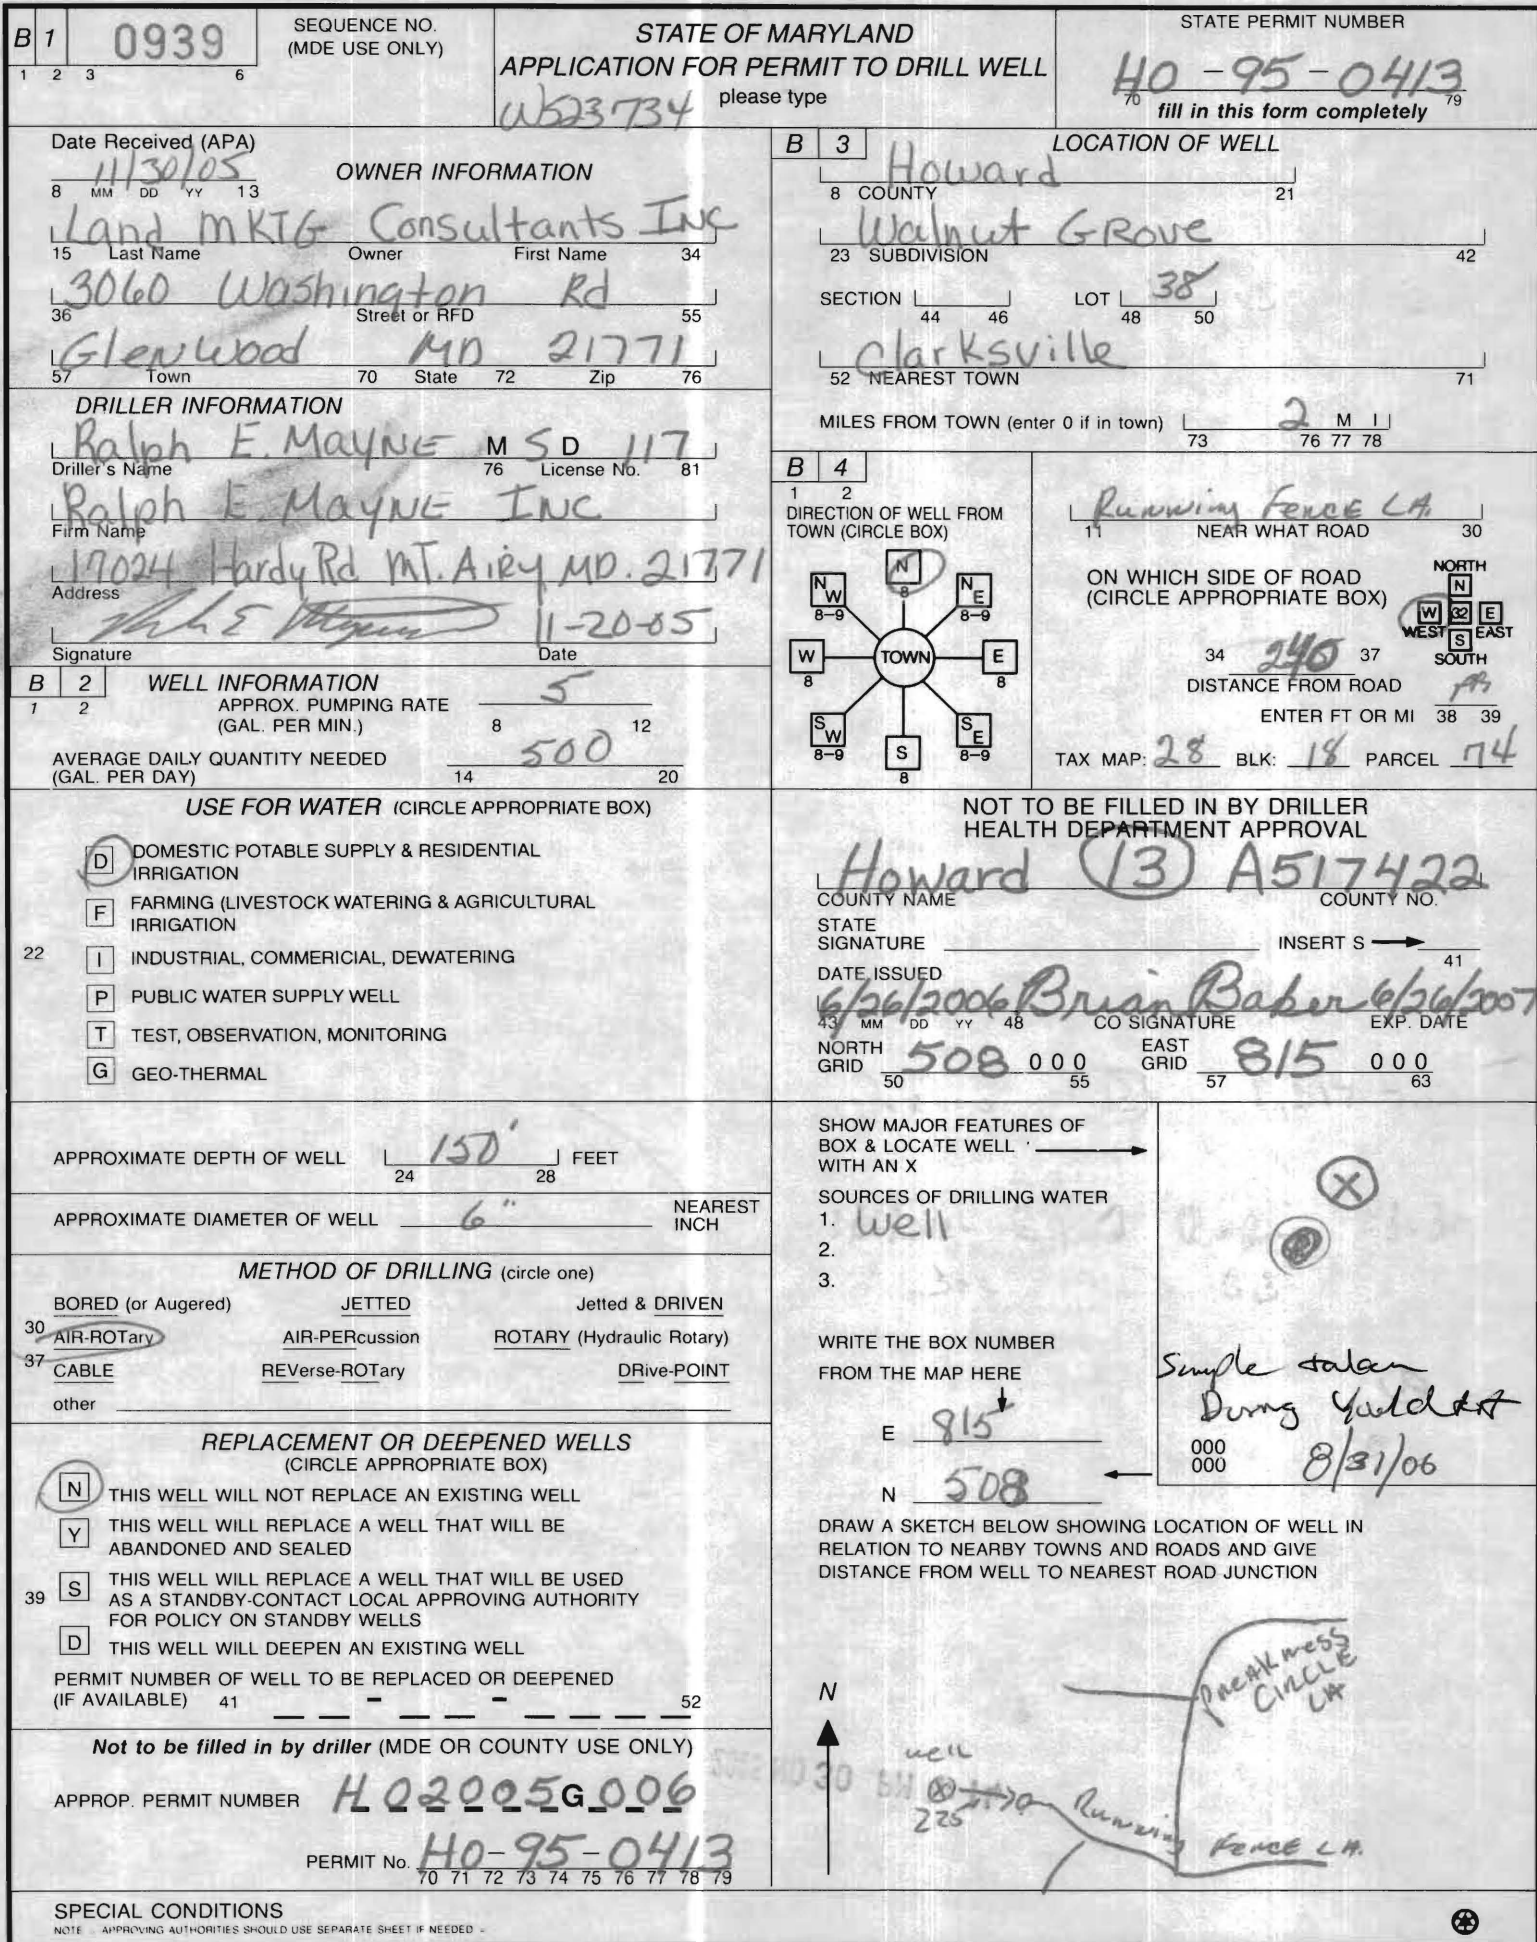 B 1 0939
1 2 3 6
SEQUENCE NO.
(MDE USE ONLY)
STATE OF MARYLAND
APPLICATION FOR PERMIT TO DRILL WELL
please type
W523734
STATE PERMIT NUMBER
HO-95-0413
70 79
fill in this form completely
Date Received (APA)
11/30/05
8 MM DD YY 13
OWNER INFORMATION
Land MKTG Consultants INC
15 Last Name Owner First Name 34
3060 Washington Rd
36 Street or RFD 55
Glenwood MD 21771
57 Town 70 State 72 Zip 76
DRILLER INFORMATION
Ralph E. MAYNE M S D 117
Driller's Name 76 License No. 81
Ralph E. MAYNE INC
Firm Name
17024 Hardy Rd MT. AIRY MD. 21771
Address
11-20-05
Signature Date
B 2 WELL INFORMATION
1 2
APPROX. PUMPING RATE
(GAL. PER MIN.) 5
8 12
AVERAGE DAILY QUANTITY NEEDED
(GAL. PER DAY) 500
14 20
USE FOR WATER (CIRCLE APPROPRIATE BOX)
D DOMESTIC POTABLE SUPPLY & RESIDENTIAL
IRRIGATION
F FARMING (LIVESTOCK WATERING & AGRICULTURAL
IRRIGATION
22 I INDUSTRIAL, COMMERICIAL, DEWATERING
P PUBLIC WATER SUPPLY WELL
T TEST, OBSERVATION, MONITORING
G GEO-THERMAL
APPROXIMATE DEPTH OF WELL 150' FEET
24 28
APPROXIMATE DIAMETER OF WELL 6" NEAREST
INCH
METHOD OF DRILLING (circle one)
BORED (or Augered) JETTED Jetted & DRIVEN
30 AIR-ROTary AIR-PERcussion ROTARY (Hydraulic Rotary)
37 CABLE REVerse-ROTary DRive-POINT
other
REPLACEMENT OR DEEPENED WELLS
(CIRCLE APPROPRIATE BOX)
N THIS WELL WILL NOT REPLACE AN EXISTING WELL
Y THIS WELL WILL REPLACE A WELL THAT WILL BE
ABANDONED AND SEALED
39 S THIS WELL WILL REPLACE A WELL THAT WILL BE USED
AS A STANDBY-CONTACT LOCAL APPROVING AUTHORITY
FOR POLICY ON STANDBY WELLS
D THIS WELL WILL DEEPEN AN EXISTING WELL
PERMIT NUMBER OF WELL TO BE REPLACED OR DEEPENED
(IF AVAILABLE) 41 - - 52
Not to be filled in by driller (MDE OR COUNTY USE ONLY)
APPROP. PERMIT NUMBER HO2005G006
PERMIT No. HO-95-0413
70 71 72 73 74 75 76 77 78 79
SPECIAL CONDITIONS
NOTE - APPROVING AUTHORITIES SHOULD USE SEPARATE SHEET IF NEEDED -
B 3 LOCATION OF WELL
Howard
8 COUNTY 21
Walnut GROVE
23 SUBDIVISION 42
SECTION LOT 38
44 46 48 50
Clarksville
52 NEAREST TOWN 71
MILES FROM TOWN (enter 0 if in town) 2 M I
73 76 77 78
B 4
1 2
DIRECTION OF WELL FROM
TOWN (CIRCLE BOX)
N
8
NW NE
8-9 8-9
W TOWN E
8 8
SW SE
8-9 S 8-9
8
Running FENCE LA.
11 NEAR WHAT ROAD 30
ON WHICH SIDE OF ROAD
(CIRCLE APPROPRIATE BOX)
NORTH
N
W 32 E
WEST S EAST
SOUTH
34 37
DISTANCE FROM ROAD
ENTER FT OR MI 38 39
TAX MAP: 28 BLK: 18 PARCEL 74
NOT TO BE FILLED IN BY DRILLER
HEALTH DEPARTMENT APPROVAL
Howard 13 A517422
COUNTY NAME COUNTY NO.
STATE
SIGNATURE INSERT S
41
DATE ISSUED
6/26/2006 Brian Baker 6/26/2007
43 MM DD YY 48 CO SIGNATURE EXP. DATE
NORTH GRID 508 000 EAST GRID 815 000
50 55 57 63
SHOW MAJOR FEATURES OF
BOX & LOCATE WELL
WITH AN X
X
SOURCES OF DRILLING WATER
1. Well
2.
3.
WRITE THE BOX NUMBER
FROM THE MAP HERE
E 815
N 508
Sample taken
During Yield test
000
000
8/31/06
DRAW A SKETCH BELOW SHOWING LOCATION OF WELL IN
RELATION TO NEARBY TOWNS AND ROADS AND GIVE
DISTANCE FROM WELL TO NEAREST ROAD JUNCTION
N
PREAKNESS
CIRCLE
LA
well
225
Running FENCE LA.